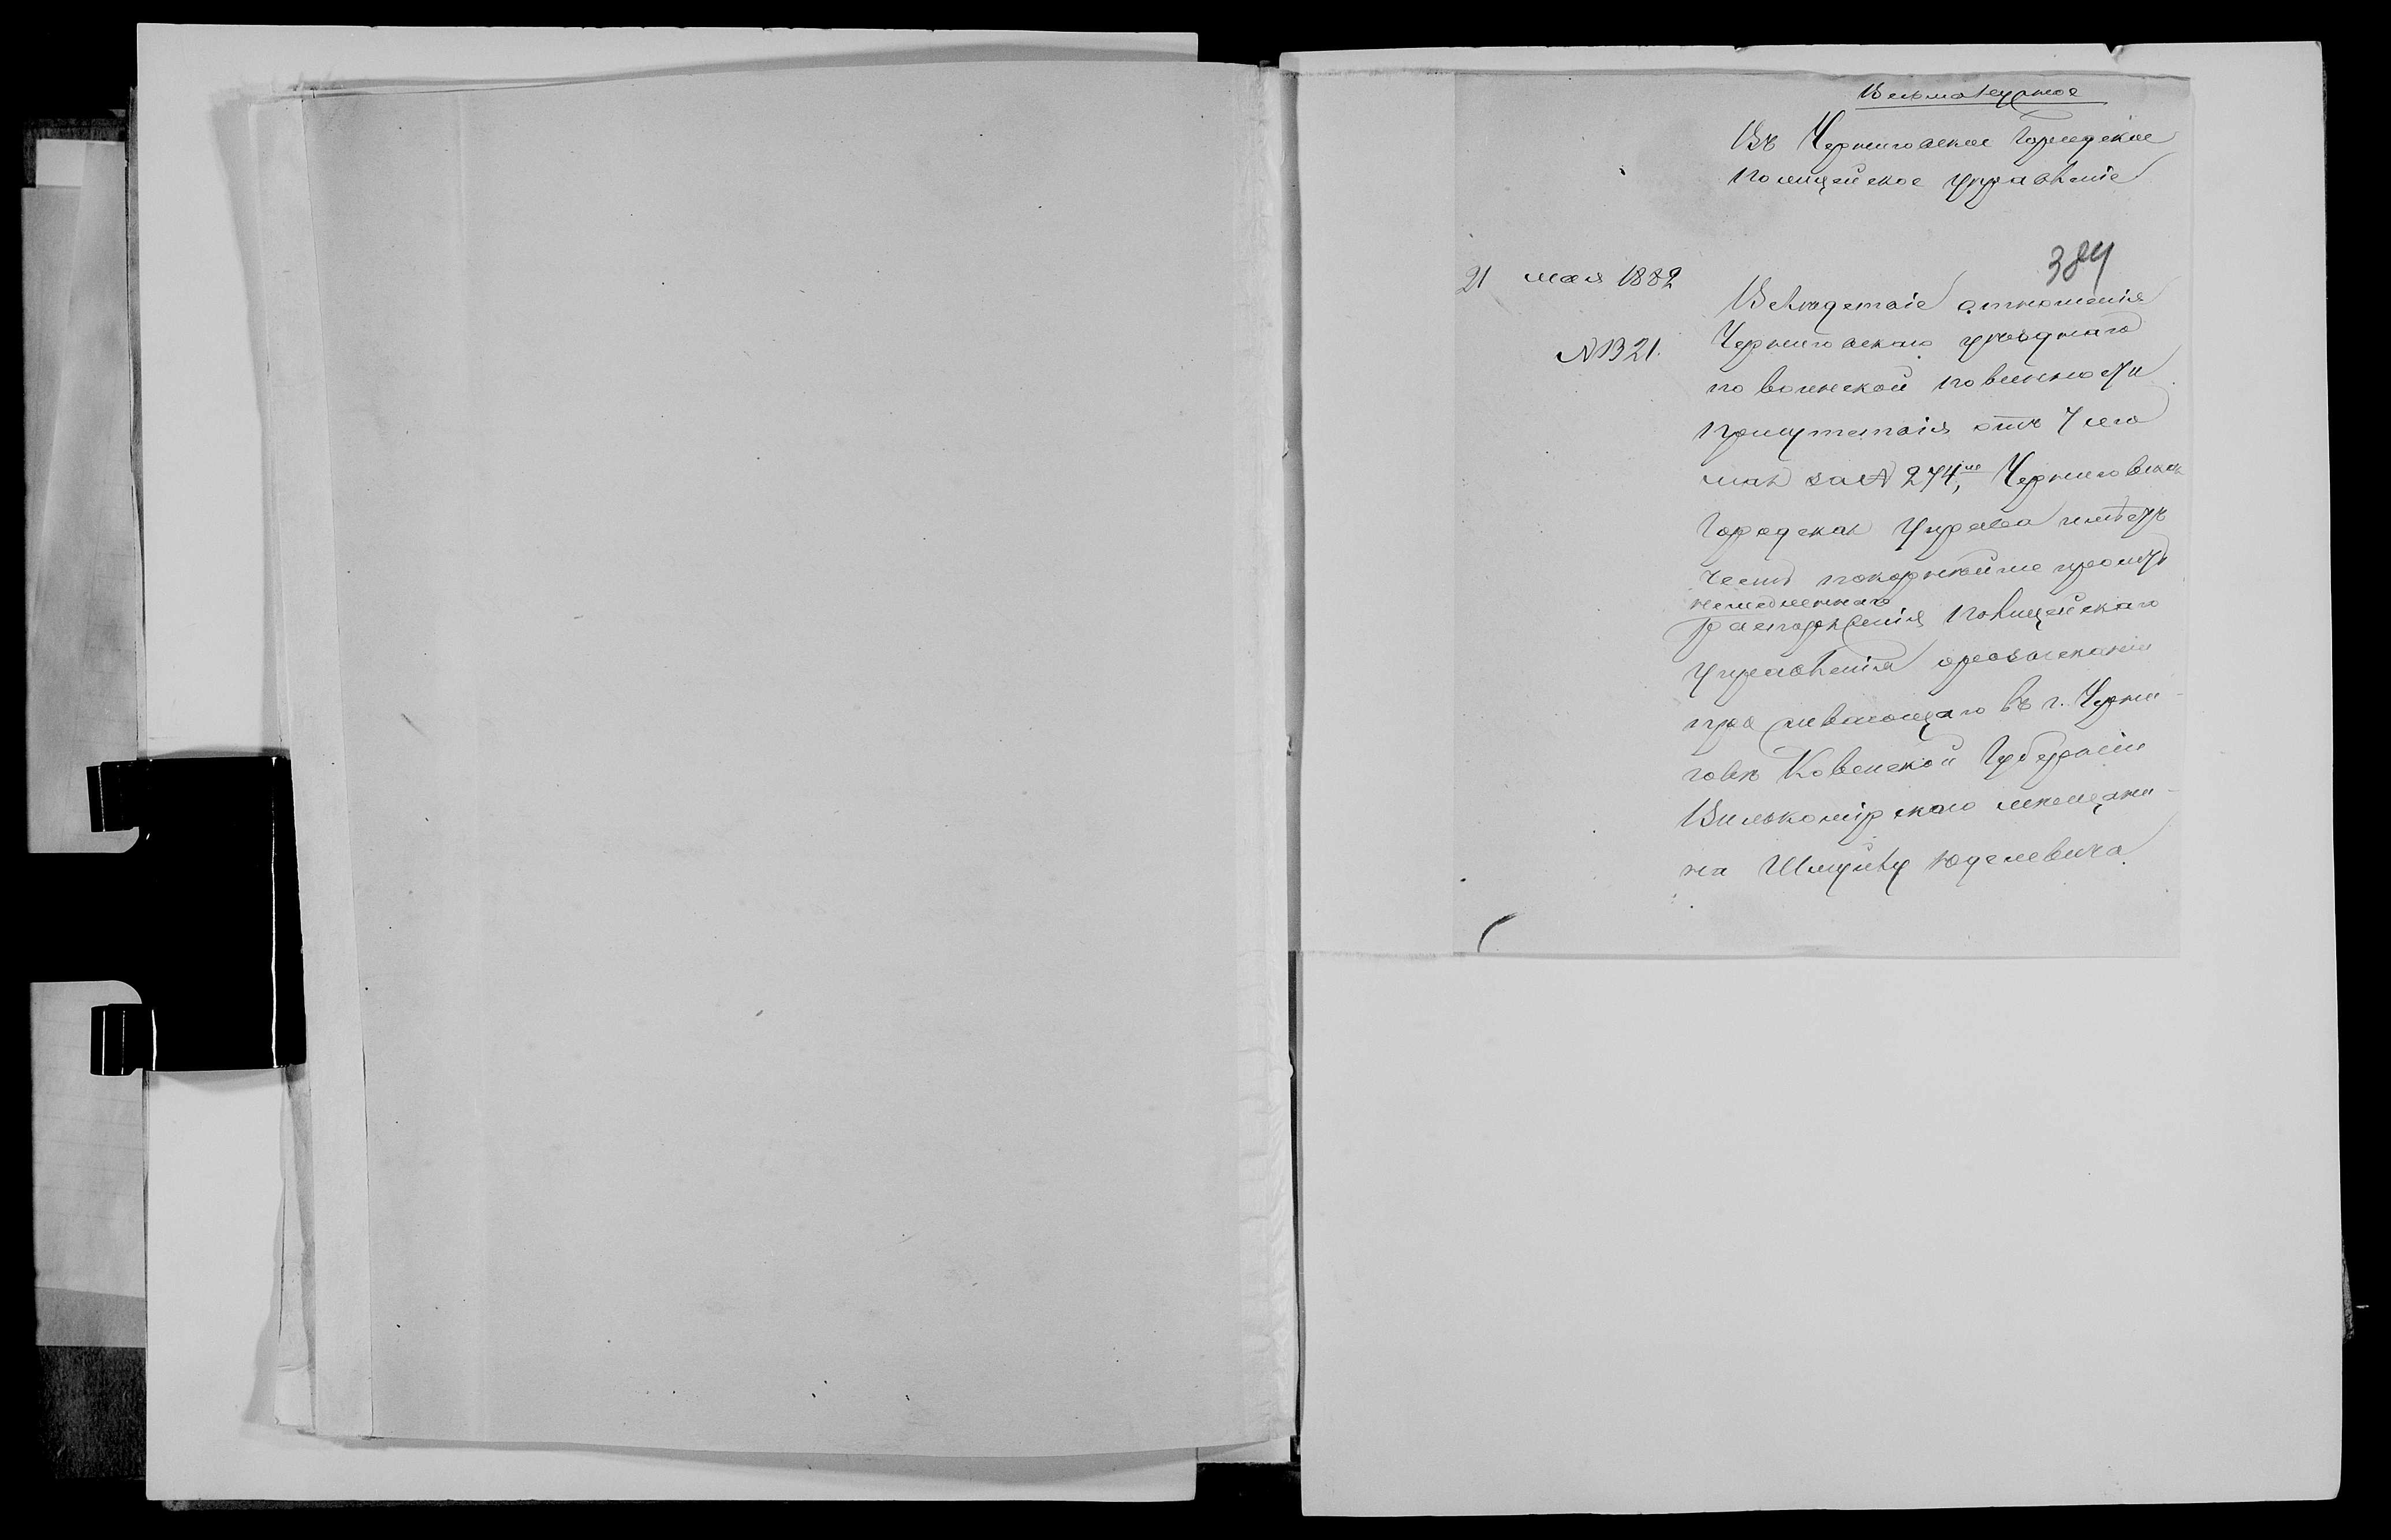 Весьма нужное
Въ Черниговское Городское
Полицейское управленіе
384
21 мая 1882
№ 1321.
Вслѣдствіе отношенія
Черниговскаго уѣзднаго
по воинской повинности
присутствія отъ 7 сего
мая за № 274, Черниговская
Городская Управа имѣетъ
честь покорнѣйше просить
немедленнаго
распоряженія Полицейскаго
Управленія о розысканіи
проживающаго въ г. Черни-
говѣ Ковенской Губерніи
Вилькомірскаго мѣщани-
на Шмуйлу Юделевича.